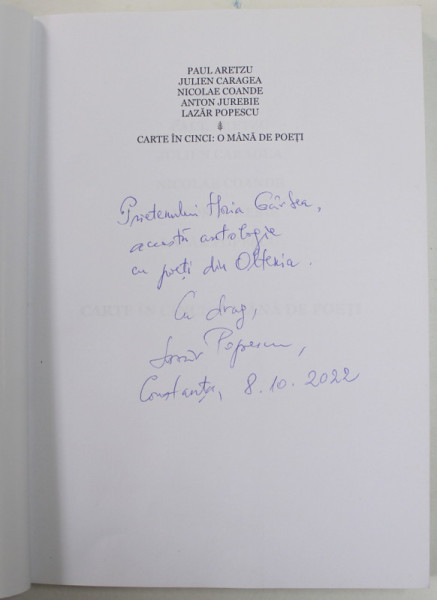 PAUL ARETZU
JULIEN CARAGEA
NICOLAE COANDE
ANTON JUREBIE
LAZĂR POPESCU
CARTE ÎN CINCI: O MÂNĂ DE POEȚI
Prietenului Horia Gârbea,
această antologie
cu poeți din Oltenia.
Cu drag,
Lazăr Popescu,
Constanța, 8.10.2022